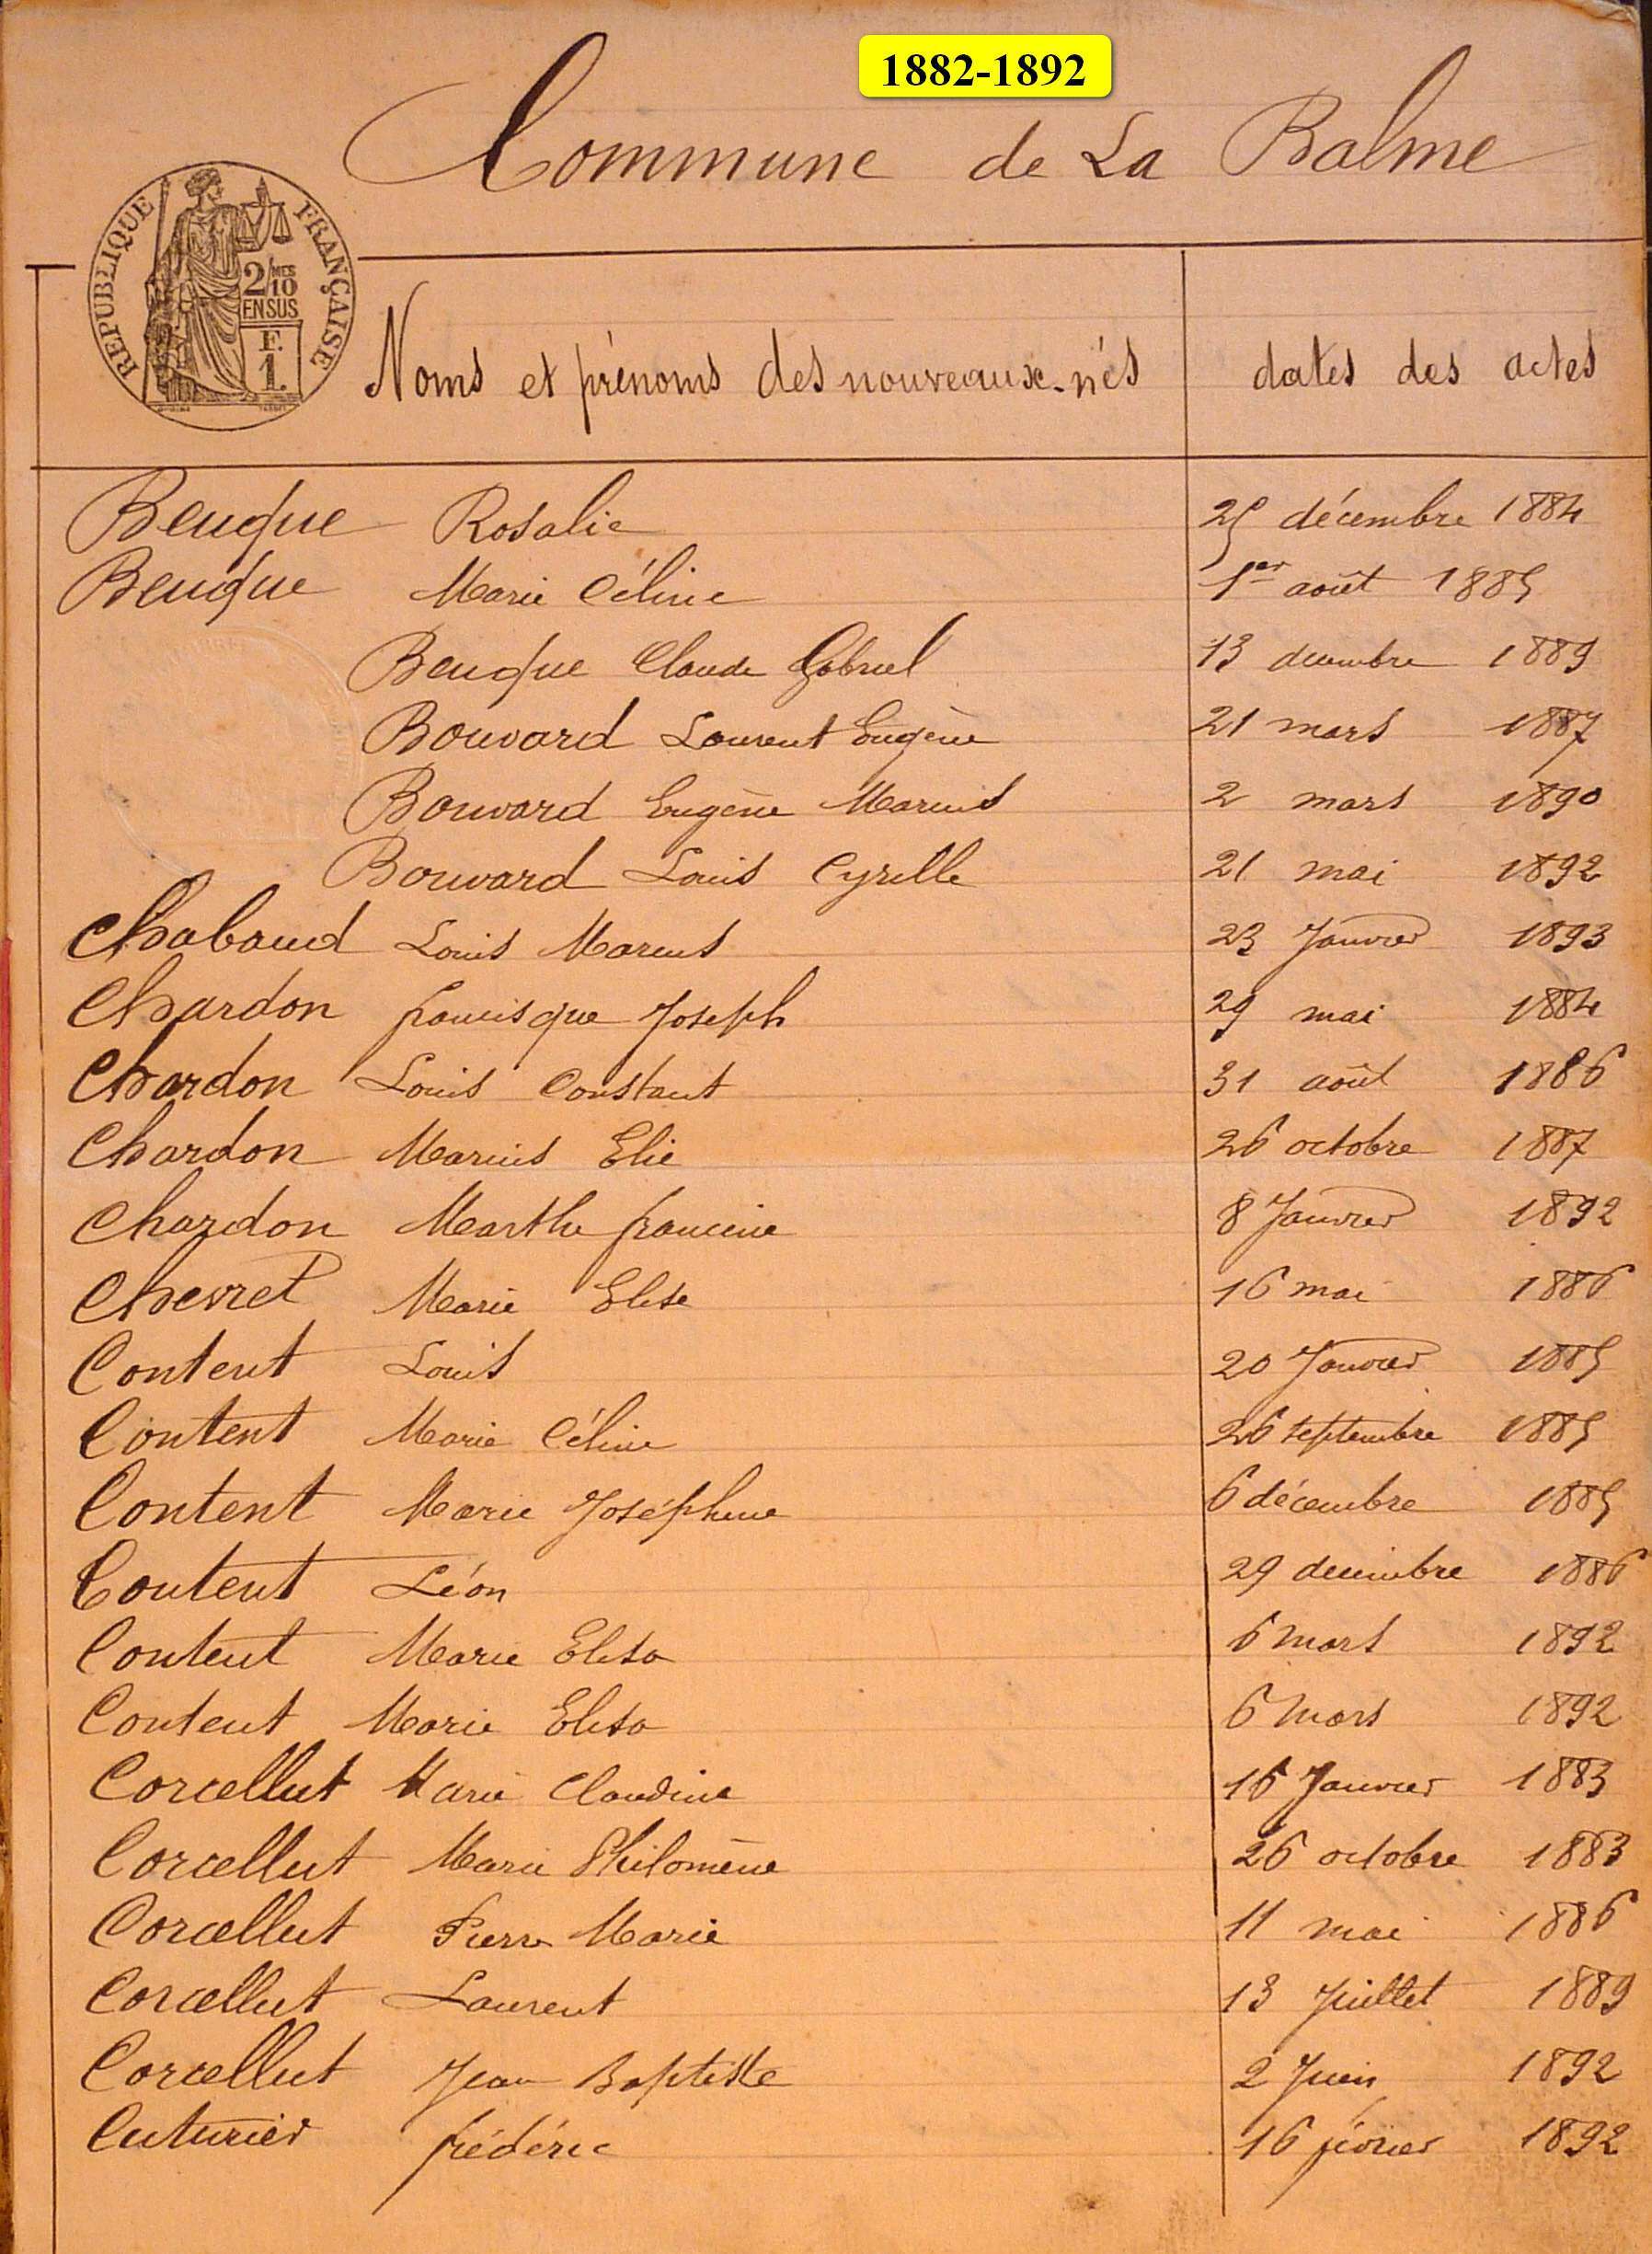 1882-1892
Commune de La Balme
REPUBLIQUE FRANÇAISE
2/10 MES
EN SUS
F.
1.
Noms et prénoms des nouveaux-nés dates des actes
Beuque Rosalie 25 décembre 1884
Beuque Marie Céline 1er août 1885
Beuque Claude Gabriel 13 decembre 1889
Bouvard Laurent Eugène 21 mars 1887
Bouvard Eugène Marius 2 mars 1890
Bouvard Louis Cyrille 21 mai 1892
Chabaud Louis Marius 23 Janvier 1893
Chardon francisque Joseph 29 mai 1884
Chardon Louis Constant 31 août 1886
Chardon Marius Elie 26 octobre 1887
Chardon Marthe francine 8 Janvier 1892
Chevret Marie Elise 16 mai 1886
Content Louis 20 Janvier 1885
Content Marie Céline 26 septembre 1885
Content Marie Joséphine 6 décembre 1885
Content Léon 29 decembre 1886
Content Marie Elisa 6 mars 1892
Content Marie Elisa 6 Mars 1892
Corcellut Marie Claudine 16 Janvier 1883
Corcellut Marie Philomène 26 octobre 1883
Corcellut Pierre Marie 11 mai 1886
Corcellut Laurent 13 Juillet 1889
Corcellut Jean Baptiste 2 Juin 1892
Cuturier frédéric 16 février 1892